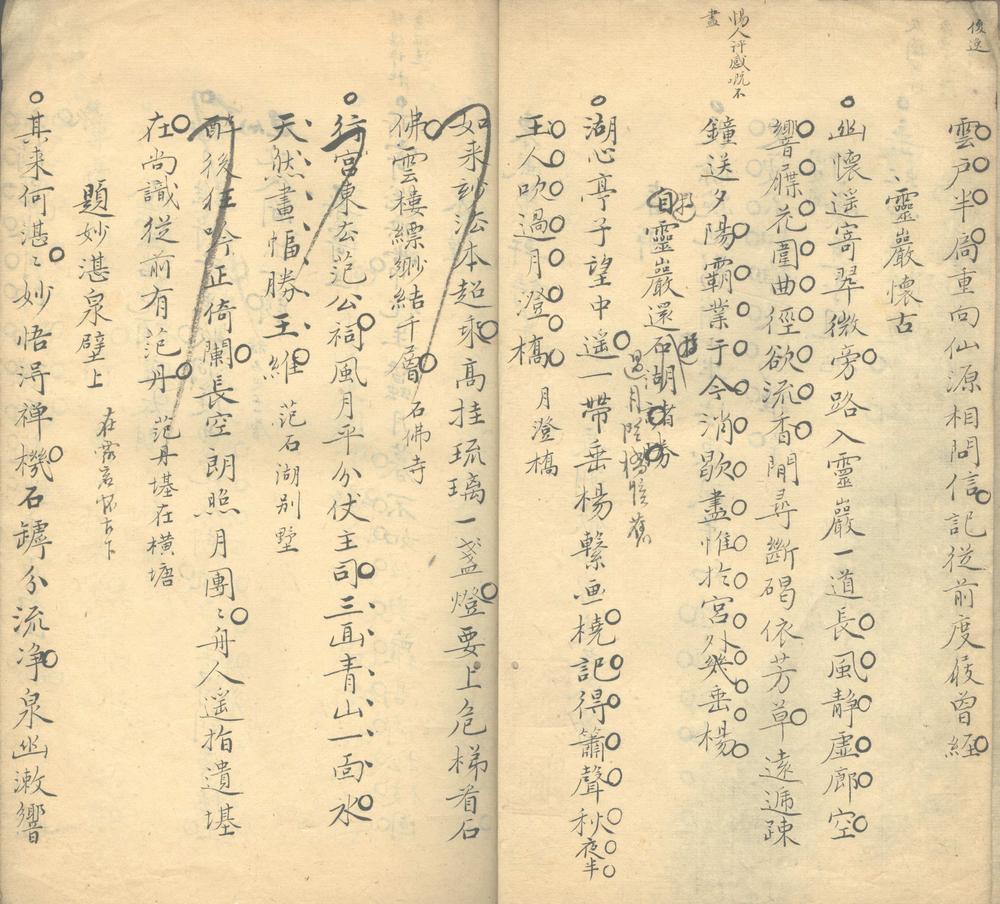 後選
雲户半扃重向仙源相問信記從前度屐曾經
靈巖懷古
幽懷遥寄翠微旁路入靈巖一道長風静虚廊空
響屧花圍曲徑欲流香閒尋斷碣依芳草遠遞疎
鐘送夕陽霸業于今消歇盡惟於宫外幾垂楊
惕人評感慨不
盡
自靈巖還石湖諸勝
過月澄橋懷舊
湖心亭子望中遥一帶垂楊繫画橈記得簫聲秋夜半
玉人吹過月澄橋 月澄橋
如来玅法本超乘高挂琉璃一盞燈要上危梯看石
佛雲樓縹緲結千層 石佛寺
行宫東去范公祠風月平分伏主司三面青山一面水
天然畫幅勝王維 范石湖别墅
醉後狂吟正倚闌長空朗照月團〻舟人遥指遺基
在尚識從前有范丹 范丹基在横塘
題妙湛泉壁上
在靈岩懷古下
其来何湛〻妙悟浔禅機石罅分流净泉幽漱響